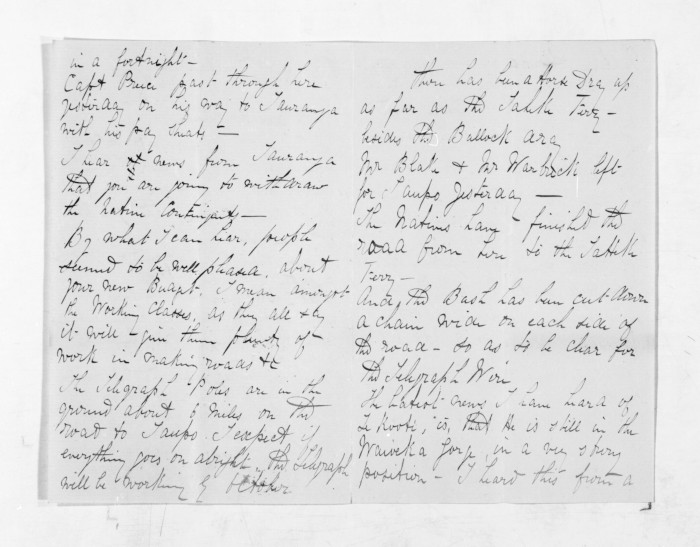 in a fortnight —
Capt Bruce past through here
yesterday on his way to Tauranga
with his pay sheets —
I hear news from Tauranga
that you are going to withdraw
the Native Contingent —
By what I can hear, people
seemed to be well pleased, about
your new Budget, I mean amongst
the Working Classes, as they all say
it will give them plenty of
work in making roads &c
The Telegraph Poles are in the
ground about 9 miles on the
road to Taupo. I expect if
everything goes on alright, the Telegraph
will be working by October
There has been a Horse Dray up
as far as the Tahike Ferry —
besides the Bullock dray
Mr Blake & Mr Warbrick left
for Taupo yesterday —
The Natives have finished the
road from here to the Tahike
Ferry —
And the Bush has been cut down
a chain wide on each side of
the road — so as to be clear for
the Telegraph Wire
The latest news I have heard of
Te Kooti, is, that He is still in the
Waiveka Gorge, in a very strong
position — I heard this from a